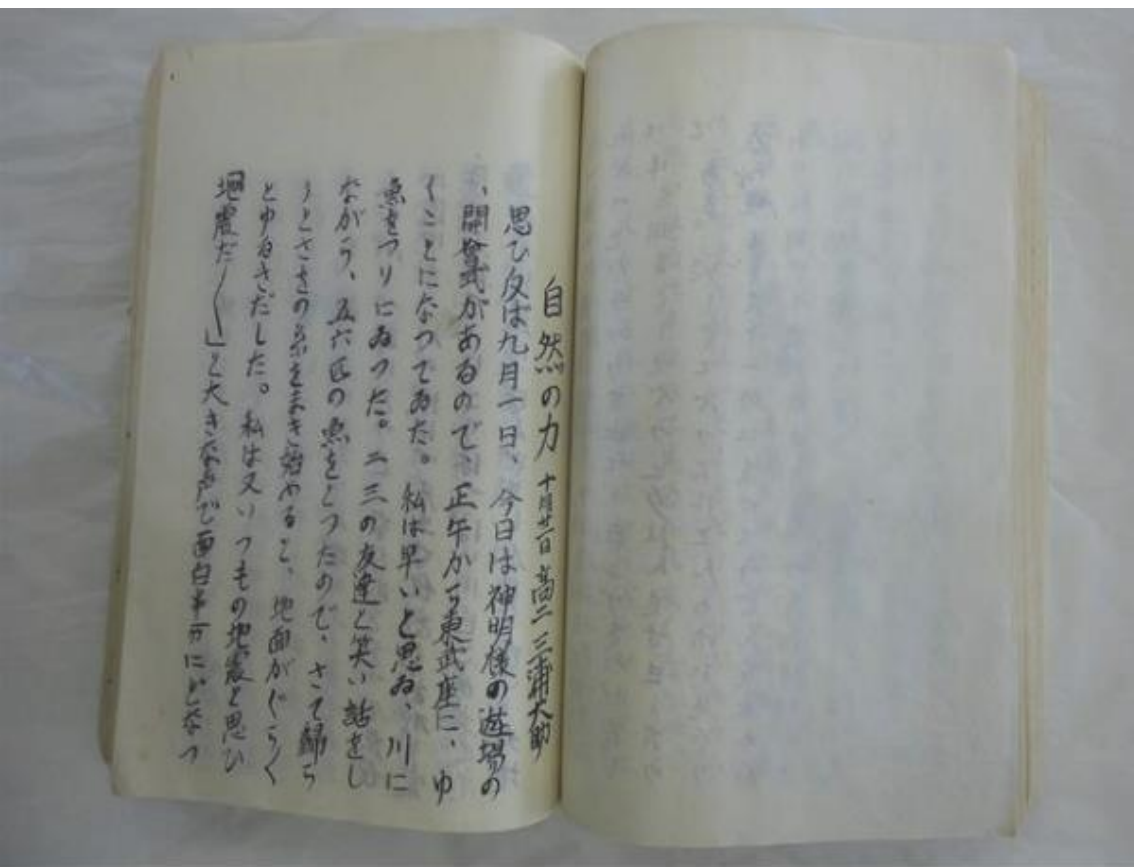 自然の力 十月廿一日 高二 三浦大助
思ひ反は九月一日、今日は神明様の遊場の
、開会式があるので、正午から東武座に、ゆ
くことになつてゐた。私は早いと思ゐ、川に
魚をつりにゐつた。二三の友達と笑い話をし
ながら、五六匹の魚をとつたので、さて帰ら
うとさをの糸をまき始めると、地面がぐら〱
とゆるさだした。私は又いつもの地震と思ひ
「地震だ〱」と大きな声で面白半分にどなつ